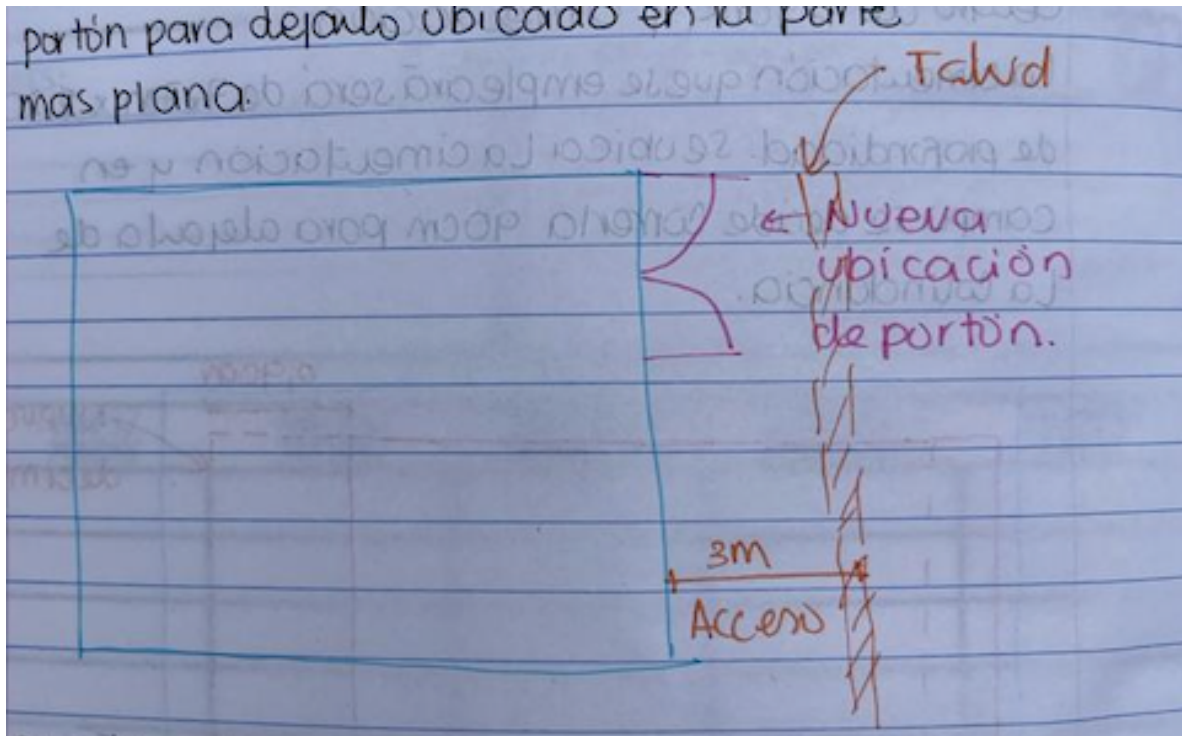 portón para dejarlo ubicado en la parte
mas plana.
Talud
← Nueva
ubicación
de portón.
3m
Acceso